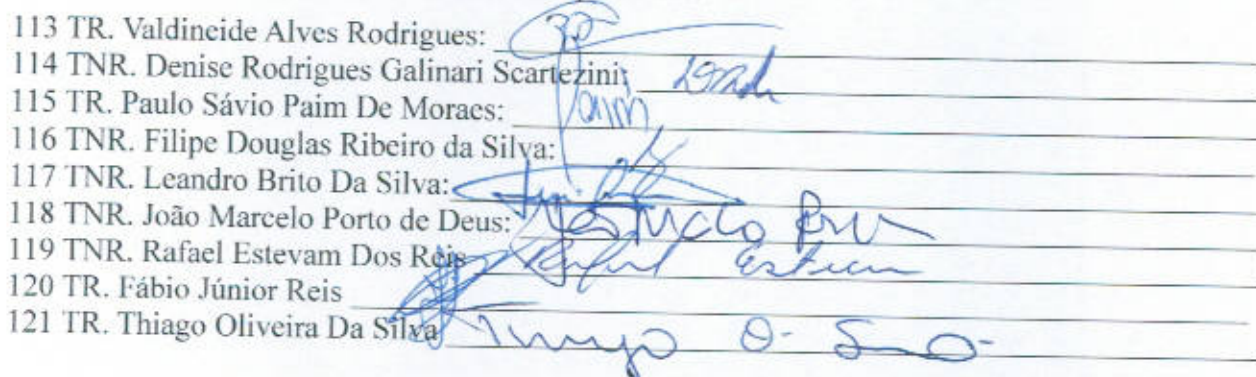 113 TR. Valdineide Alves Rodrigues:
114 TNR. Denise Rodrigues Galinari Scartezini:
115 TR. Paulo Sávio Paim De Moraes: Paim
116 TNR. Filipe Douglas Ribeiro da Silva:
117 TNR. Leandro Brito Da Silva:
118 TNR. João Marcelo Porto de Deus:
119 TNR. Rafael Estevam Dos Reis Rafael Estevam
120 TR. Fábio Júnior Reis
121 TR. Thiago Oliveira Da Silva Thiago O. Silva